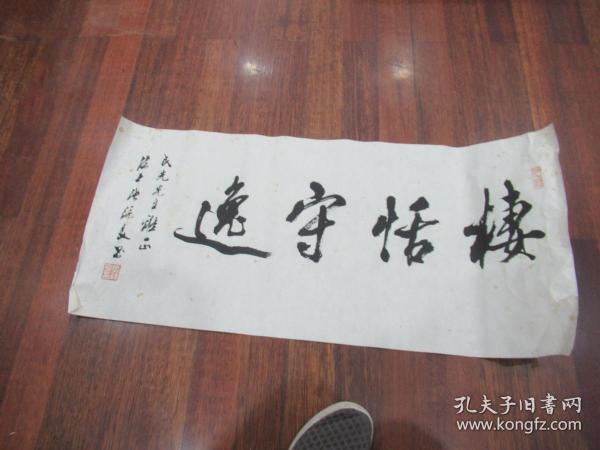 棲恬守逸
民先先生雅正
孔夫子旧書网
www.kongfz.com